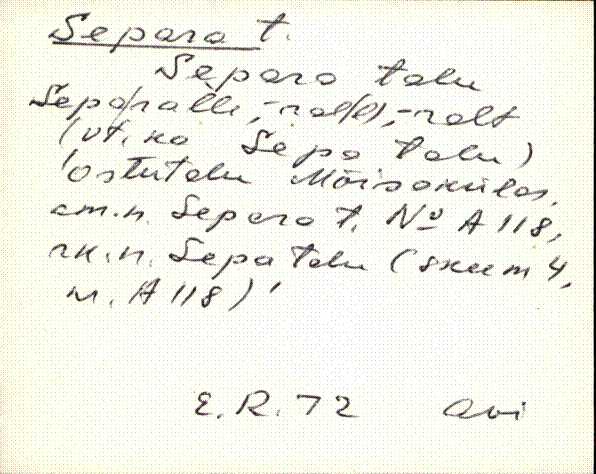 Separa t.
Separa talu
Separalle, -ral(t), -ralt
(vt. ka Sepa talu)
'ostutalu Mõisakülas,
am.n. Separa t. No A 118,
rk.n. Sepa talu (skeem 4,
nr. A 118)'
E.R. 72 Avi